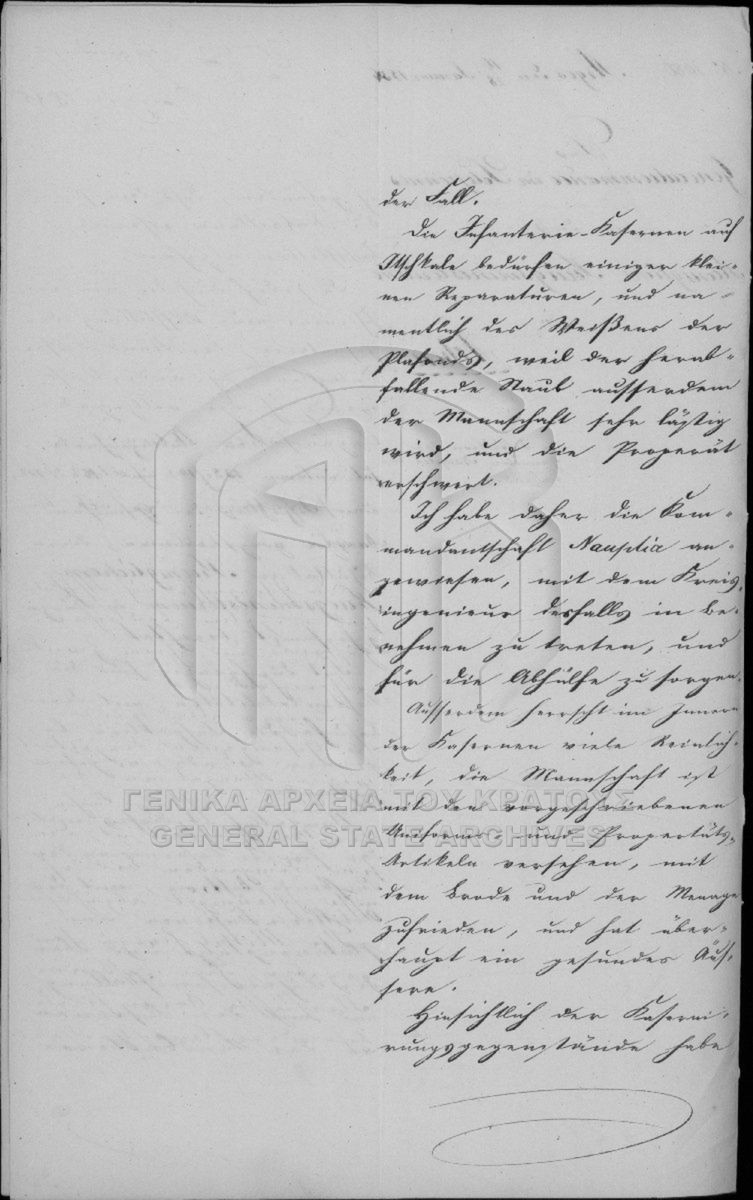 der Fall.
Die Infanterie-Kasernen auf
Itschkale bedürfen einiger klei-
nen Reparaturen, und na-
mentlich des Weißens der
Plafonds, weil der herab-
fallende Staub ausserdem
der Mannschaft sehr lästig
wird, und die Properität
erschwert.
Ich habe daher die Kom-
mandantschaft Nauplia an-
gewiesen, mit dem Kreis-
ingenieur desfalls in Be-
nehmen zu treten, und
für die Abhülfe zu sorgen.
Ausserdem herrscht im Innern
der Kasernen viele Reinlich-
keit, die Mannschaft ist
mit den vorgeschriebenen
Uniforms- und Propertäts-
Artikeln versehen, mit
dem Brode und der Menage
zufrieden, und hat über-
haupt ein gesundes Äus-
sere.
Hinsichtlich der Kaserni-
rungsgegenstände habe
ΓΕΝΙΚΑ ΑΡΧΕΙΑ ΤΟΥ ΚΡΑΤΟΥΣ
GENERAL STATE ARCHIVES